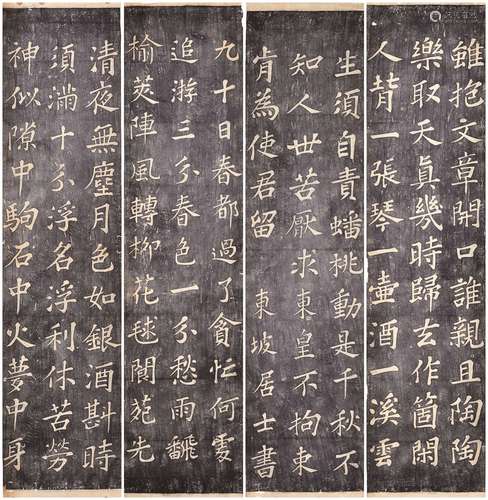 清夜無塵月色如銀酒斟時
須滿十分浮名浮利休苦勞
神似隙中駒石中火夢中身
雖抱文章開口誰親且陶陶
樂取天真幾時歸去作箇閑
人背一張琴一壺酒一溪雲
九十日春都過了貪忙何處
追游三分春色一分愁雨飜
榆莢陣風轉柳花毬閬苑先
生須自責蟠桃動是千秋不
知人世苦厭求東皇不拘束
肯為使君留 東坡居士書